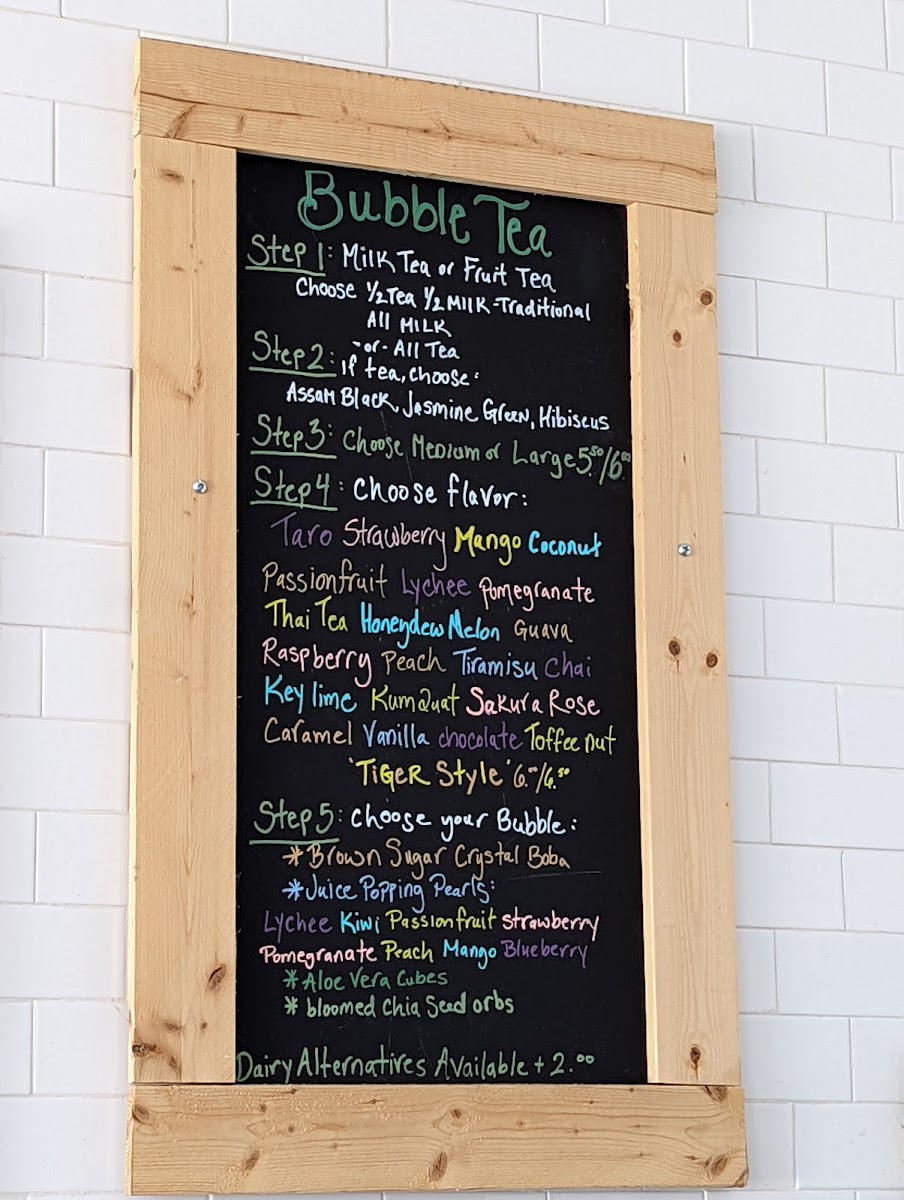 Bubble Tea
Step 1: Milk Tea or Fruit Tea
Choose ½ Tea ½ Milk - Traditional
All Milk
-or- All Tea
Step 2: if tea, choose:
Assam Black, Jasmine Green, Hibiscus
Step 3: Choose Medium or Large 5.50/6.00
Step 4: Choose flavor:
Taro Strawberry Mango Coconut
Passionfruit Lychee Pomegranate
Thai Tea Honeydew Melon Guava
Raspberry Peach Tiramisu Chai
Key lime Kumquat Sakura Rose
Caramel Vanilla chocolate Toffee nut
'Tiger Style' 6.00/6.50
Step 5: Choose your Bubble:
* Brown Sugar Crystal Boba
* Juice Popping Pearls:
Lychee Kiwi Passionfruit Strawberry
Pomegranate Peach Mango Blueberry
* Aloe Vera Cubes
* bloomed Chia Seed orbs
Dairy Alternatives Available + 2.00